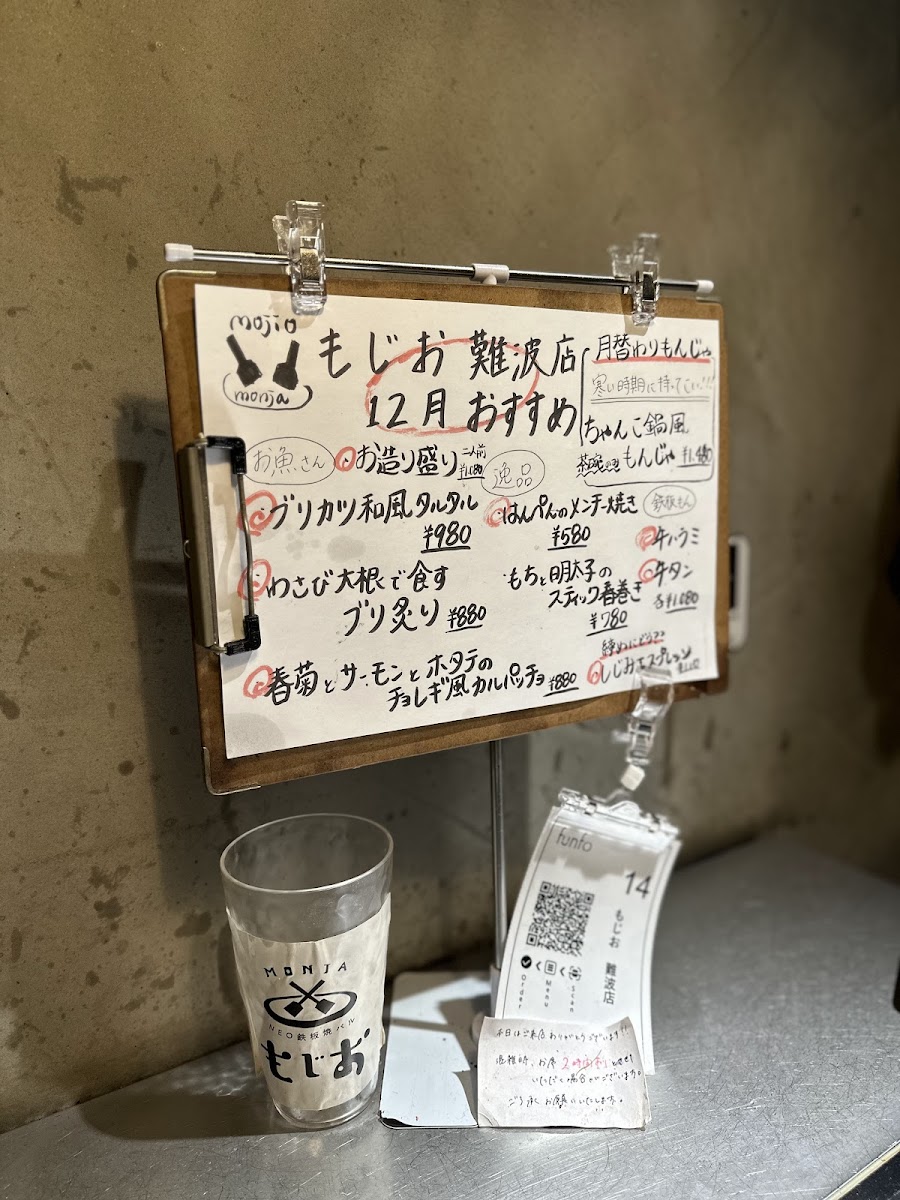 mojio
monja
もじお 難波店
12月 おすすめ
月替わりもんじゃ
寒い時期に持ってこい!!!
ちゃんこ鍋風
もんじゃ ¥1,480
お魚さん
お造り盛り 二人前 ¥1,080
ブリカツ和風タルタル
¥980
わさび大根で食す
ブリ炙り ¥880
春菊とサーモンとホタテの
チョレギ風カルパッチョ ¥880
逸品
はんぺんのメンチー焼き
¥580
もちと明太子の
スティック春巻き
¥780
鉄板もん
牛ハラミ
牛タン
各¥1,080
締めにどうぞ
しじみエスプレッソ
MONJA
NEO鉄板焼バル
もじお
funfo
14
もじお 難波店
Scan
Menu
Order
本日はご来店ありがとうございます!!
混雑時、お席2時間制とさせて
いただく場合がございます。
ご了承お願いいたします。